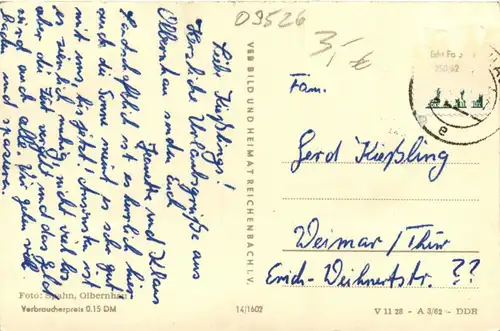 09526
3,- €
Liebe Kießlings!
Herzliche Urlaubsgrüße aus
Olbernhau senden Euch
Hannette und Klaus
Landschaftlich ist es herrlich hier
auch die Sonne meint es sehr gut
mit uns bis jetzt! Ansonsten ist
es ziemlich ruhig, nicht viel los
aber die Zeit vergeht und das Geld
wird auch alle. Wir gehen viel
baden und spazieren.
Foto: Spahn, Olbernhau
Verbraucherpreis 0.15 DM
VEB BILD UND HEIMAT REICHENBACH I. V.
14/1602
Fam.
Gerd Kießling
Weimar/Thür
Erich-Weihnertstr. ??
V 11 28 - A 3/62 - DDR